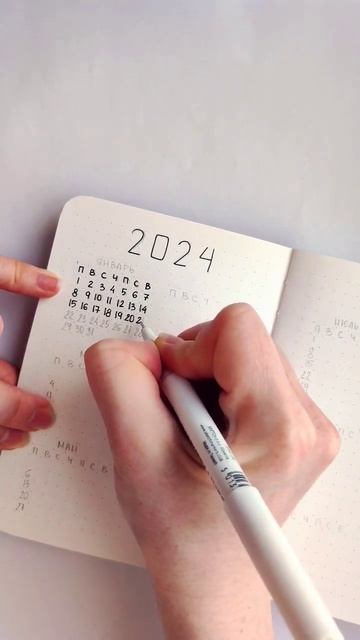 2024
ЯНВАРЬ
П В С Ч П С В
1 2 3 4 5 6 7
8 9 10 11 12 13 14
15 16 17 18 19 20 2
22 23 24 25 26 27 28
29 30 31
П В С Ч
МАЙ
П В С Ч П С В
6
13
20
27
ИЮЛЬ
П В С Ч
1
8
15
22